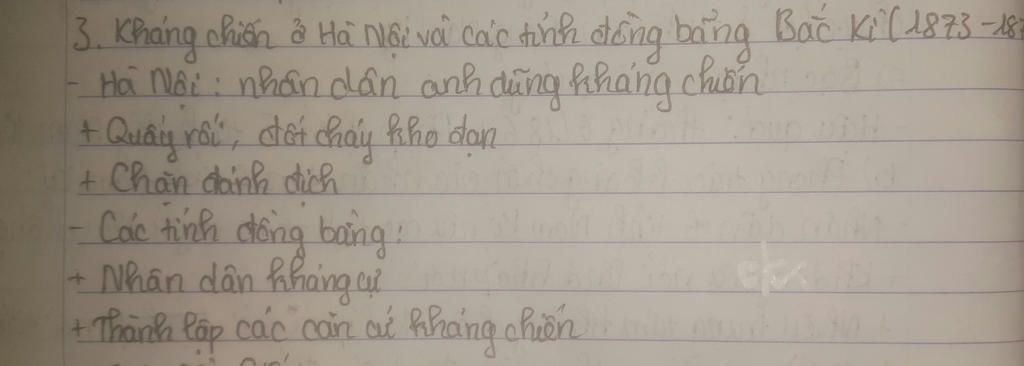 3. Kháng chiến ở Hà Nội và các tỉnh đồng bằng Bắc Kì (1873 - 18
- Hà Nội: nhân dân anh dũng kháng chiến
+ Quấy rối, đốt cháy kho đạn
+ Chặn đánh địch
- Các tỉnh đồng bằng:
+ Nhân dân kháng cự
+ Thành lập các căn cứ kháng chiến